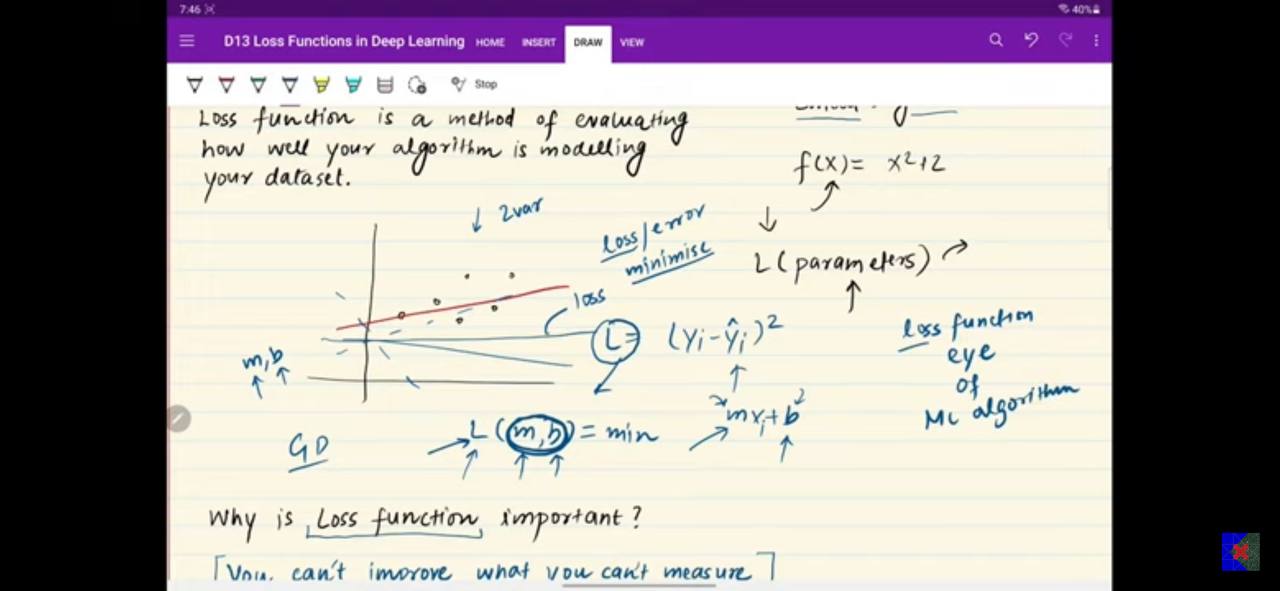 7:46
40%
D13 Loss Functions in Deep Learning HOME INSERT DRAW VIEW
Stop
Loss function is a method of evaluating
how well your algorithm is modelling
your dataset.
f(x) = x²+2
↓ 2var
loss/error
minimise
L (parameters)
loss
L = (yi - ŷi)²
loss function
eye
of
ML algorithm
m,b
mxi + b
GD
L (m,b) = min
Why is Loss function important?
[You can't improve what you can't measure]